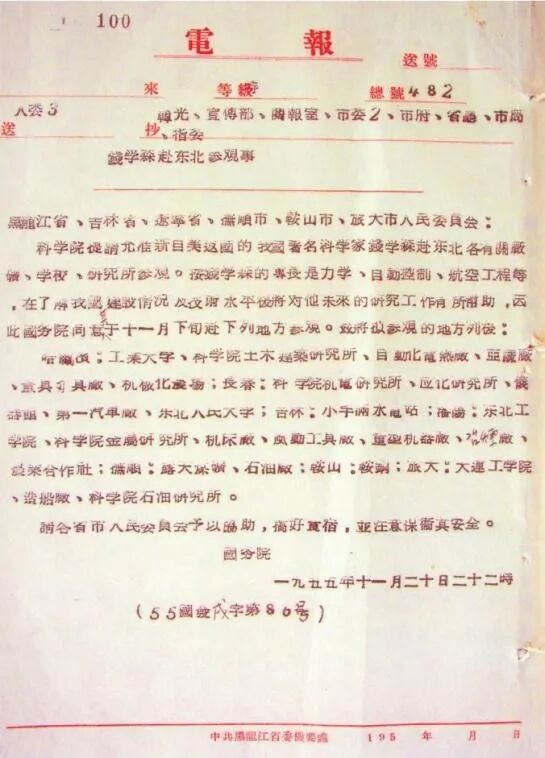 100
電報
送號
來 等級 總號482
人委3 光、宣傳部、簡報室、市委2、市府、省廳、市局
送 抄 、指委
錢学森赴东北参观事
黑龍江省、吉林省、遼寧省、撫順市、鞍山市、旅大市人民委員会：
科学院提請允准新自美返國的我國著名科学家錢学森赴东北各有関廠
礦、学校、研究所参观。按錢学森的專長是力学、自動控制、航空工程等
，在了解我國建設情况及技術水平後將对他未來的研究工作有所帮助，因
此國务院同意于十一月下旬赴下列地方参观。兹將拟参观的地方列後：
哈爾濱；工業大学、科学院土木建築研究所、自動化電熱廠、亞蔴廠
、量具刃具廠、机械化農場；長春；科学院机電研究所、应化研究所、儀
器館、第一汽車廠、东北人民大学；吉林；小丰滿水電站；瀋陽；东北工
学院、科学院金屬研究所、机床廠、風動工具廠、重型机器廠、冶煉廠、
農業合作社；撫順；露天煤礦、石油廠；鞍山；鞍鋼；旅大；大連工学院
、造船廠、科学院石油研究所。
請各省市人民委員会予以協助，搞好食宿，並注意保衞其安全。
國务院
一九五五年十一月二十日二十二時
(55國发戌字第80号)
中共黑龍江省委機要處 195 年 月 日